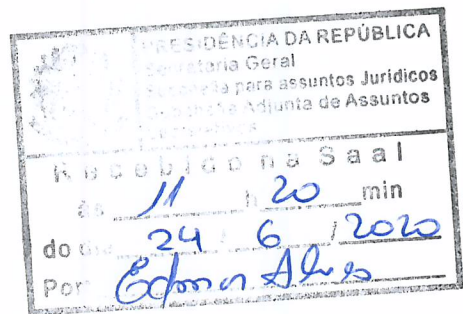 PRESIDÊNCIA DA REPÚBLICA
Secretaria Geral
para assuntos Jurídicos
Adjunta de Assuntos
Recebido na Saal
às 11 h 20 min
do dia 24 / 6 / 2020
Por